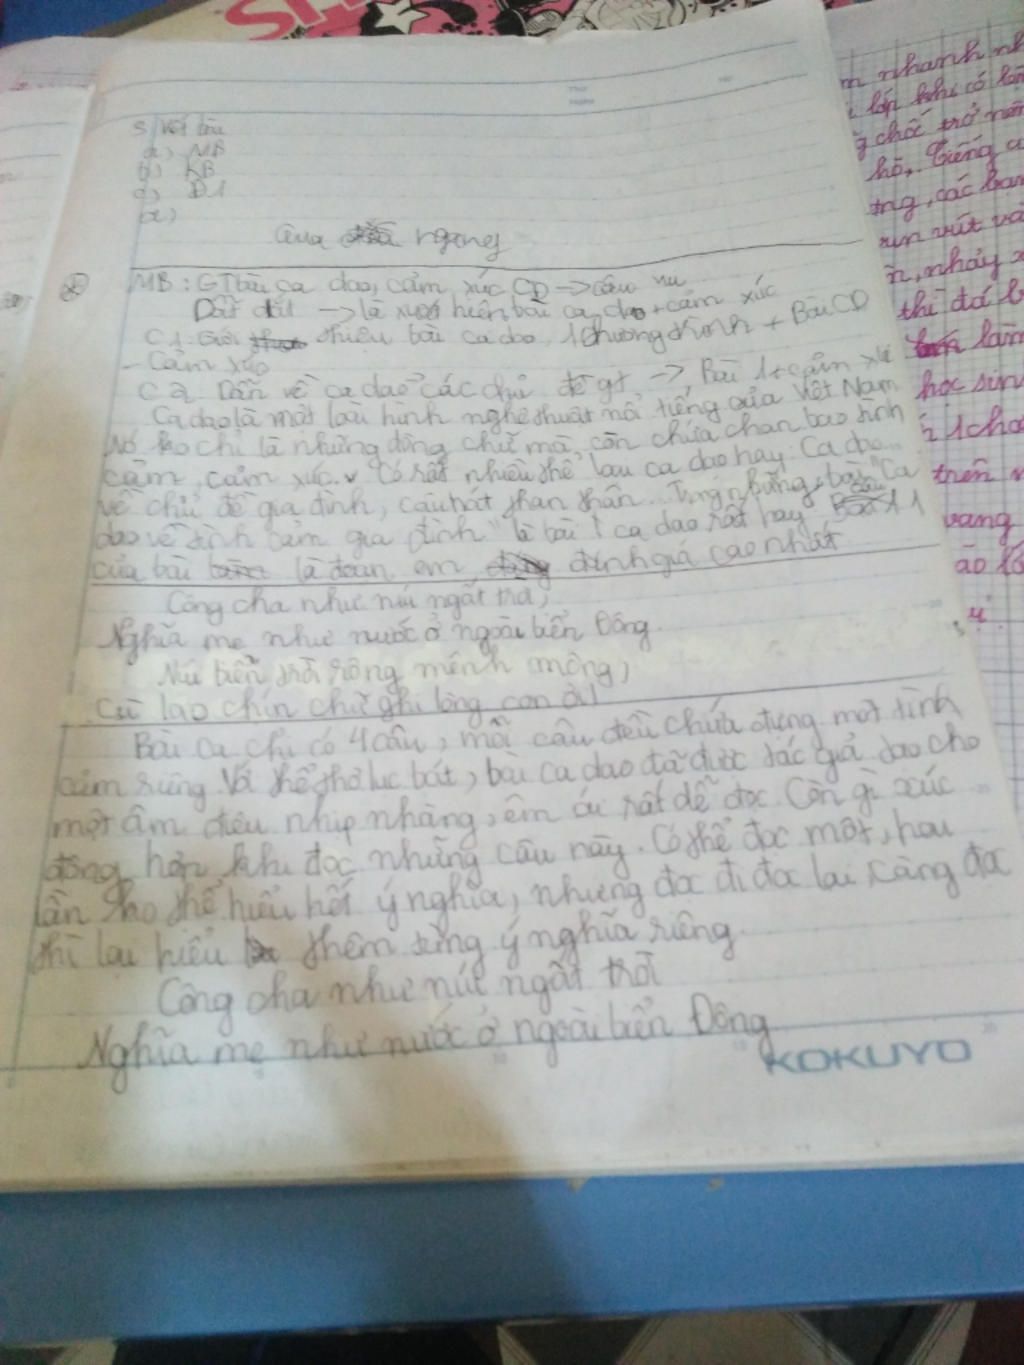 a) MB
b) KB
c)
ngang
MB: GT bài ca dao, cảm xúc CD → câu
Dẫn dắt → là xuất hiện bài ca dao + cảm xúc
C1. Giới thiệu bài ca dao, 1 chương trình + Bài CD
- Cảm xúc
C2. Dẫn về ca dao các chủ đề gt → Bài 1 + cảm
Ca dao là một loài hình nghệ thuật nổi tiếng của Việt Nam
Nó ko chỉ là những dòng chữ mà còn chứa chan bao tình
cảm, cảm xúc. Có rất nhiều thể loại ca dao hay: Ca dao...
về chủ đề gia đình, câu hát than thân... Trong những bài "Ca
dao về tình cảm gia đình" là bài ca dao rất hay. 1
của bài là đoạn em đánh giá cao nhất
Công cha như núi ngất trời,
Nghĩa mẹ như nước ở ngoài biển Đông.
Núi biển trời rộng mênh mông,
Cù lao chín chữ ghi lòng con ơi!
Bài ca chỉ có 4 câu, mỗi câu đều chứa đựng một tình
cảm riêng. Với thể thơ lục bát, bài ca dao đã được tác giả dao cho
một âm điệu nhịp nhàng, êm ái rất dễ đọc. Còn gì xúc
động hơn khi đọc những câu này. Có thể đọc một, hai
lần ko thể hiểu hết ý nghĩa, nhưng đọc đi đọc lại, càng đọc
thì lại hiểu thêm từng ý nghĩa riêng.
Công cha như núi ngất trời
Nghĩa mẹ như nước ở ngoài biển Đông
KOKUYO
nhanh
lớp khi có
chốc trở nên
hò. Tiếng
các bạn
vút
nhảy
thì đá
làm
học sinh
trên
vang
4